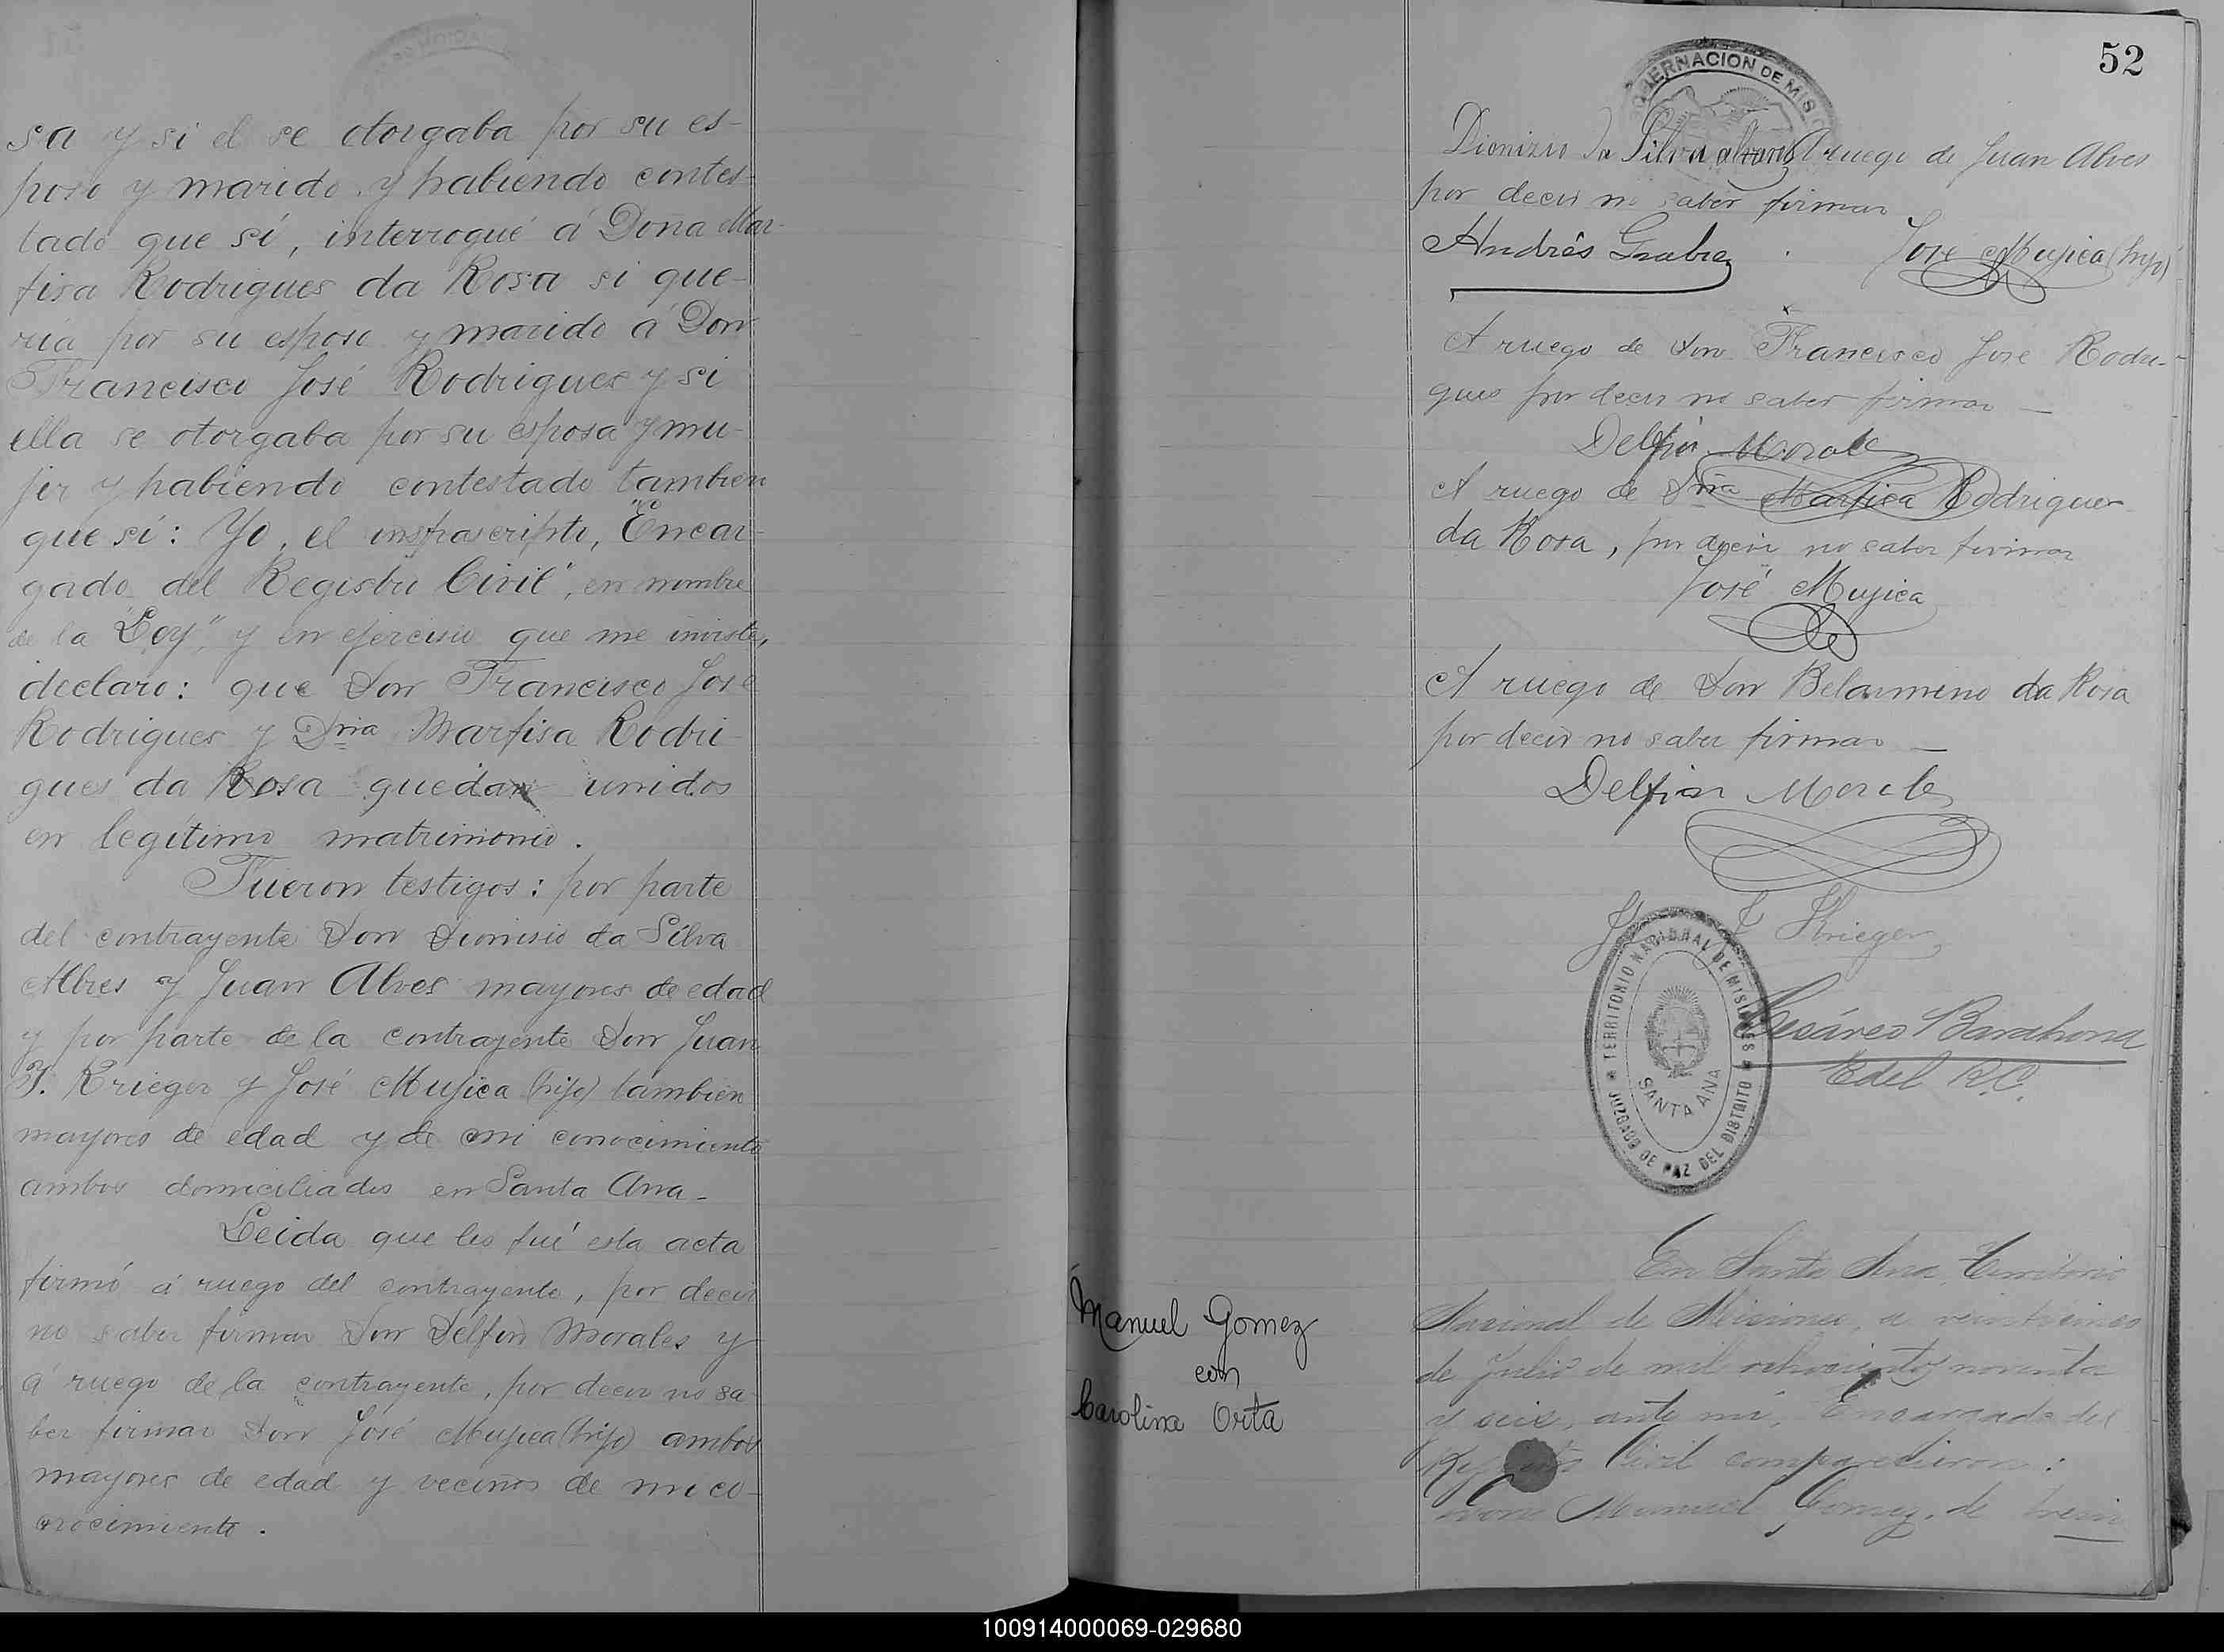 sa y si el se otorgaba por su es-
poso y marido, y habiendo contes-
tado que sí, interrogué á Doña Mar-
fisa Rodrigues da Rosa si que-
ria por su esposo y marido á Don
Francisco José Rodrigues y si
ella se otorgaba por su esposa y mu-
jer y habiendo contestado tambien
que sí: Yo, el infrascripto, "Encar-
gado del Registro Civil", en nombre
de la "Ley" y en ejercicio que me inviste,
declaro: que Don Francisco José
Rodrigues y Dña Marfisa Rodri-
gues da Rosa quedan unidos
en legítimo matrimonio.
Fueron testigos: por parte
del contrayente Don Dionisio da Silva
Albres y Juan Alves mayores de edad
y por parte de la contrayente Don Juan
F. Krieger y José Mujica (hijo) tambien
mayores de edad y de mi conocimiento
ambos domiciliados en Santa Ana-
Leida que les fué esta acta
firmó á ruego del contrayente, por decir
no saber firmar Don Delfin Morales y
á ruego de la contrayente, por decir no sa-
ber firmar Don José Mujica (hijo) ambos
mayores de edad y vecinos de mi co-
nocimiento.
52
GOBERNACION DE MIS
Dionizio da Silva A ruego de Juan Alves
por decir no saber firmar
Andrés José Mujica (hijo)
A ruego de Don Francisco José Rodri-
gues por decir no saber firmar —
Delfin Morales
A ruego de Dña Marfisa Rodrigues
da Rosa, por decir no saber firmar
José Mujica
A ruego de Don Belarmino da Rosa
por decir no saber firmar —
Delfin Morales
J F Krieger
TERRITORIO NACIONAL DE MISIONES
JUZGADO DE PAZ DEL DISTRITO
SANTA ANA
Cesáreo Barahona
E del R.C.
En Santa Ana, Territorio
Nacional de Misiones, a veinticinco
de Julio de mil ochocientos noventa
y seis, ante mí, Encargado del
Registro Civil comparecieron:
Don Manuel Gomez, de trein
Manuel Gomez
con
Carolina Orta
100914000069-029680